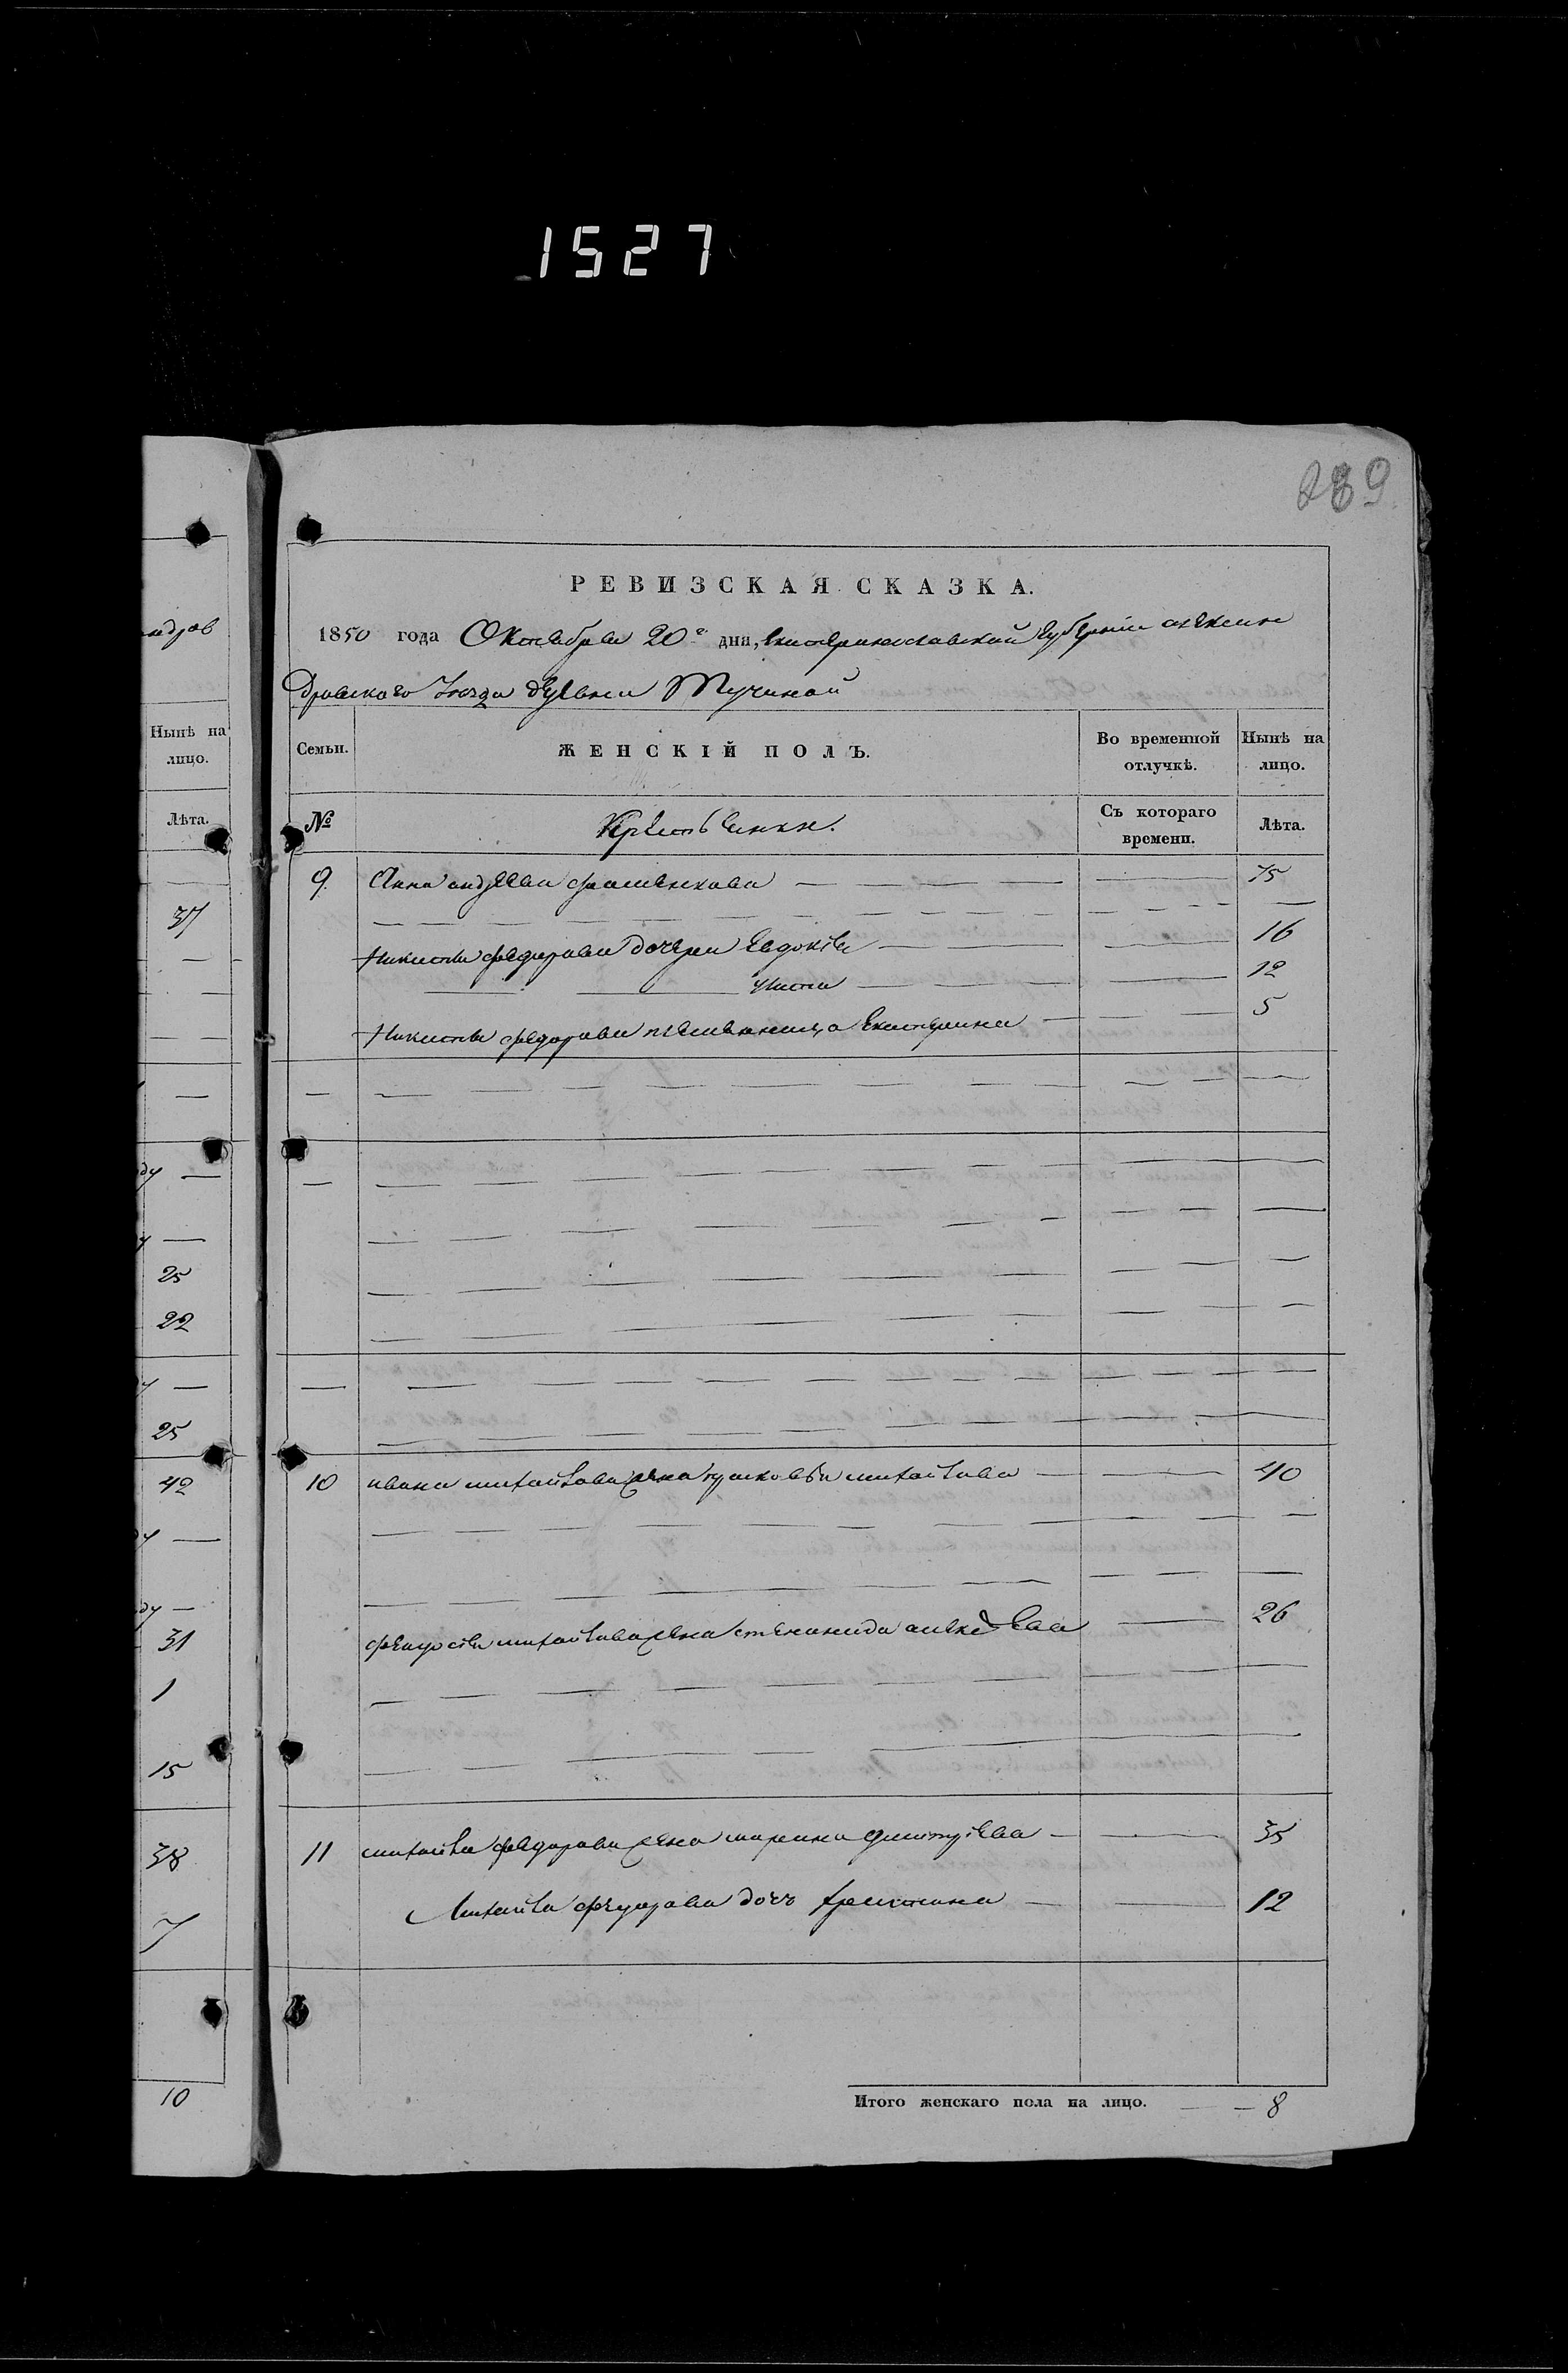 1527
289
ндров
РЕВИЗСКАЯ СКАЗКА.
1850 года Октября 20го дня, Екатеринославской Губернии Алексан
Дровского Уезда деревни Тучиной
Нынѣ на лицо.
Лѣта.
Семьи.
ЖЕНСКІЙ ПОЛЪ.
Во временной отлучкѣ.
Нынѣ на лицо.
№
Крестьянки.
Съ котораго времени.
Лѣта.
9 Анна андреева — — — 75
Никиты федорова дочери Евдокия — — 16
— — — — 12
Никиты федорова племянница Екатерина — — 5
10 ивана михайлова жена михайлова — — 40
михайлова жена степанида алексеева — 26
11 михайла федорова жена марина дмитриева — — 35
Михайла федорова дочь христина — — 12
Итого женскаго пола на лицо. — — 8
37
ду —
у —
25
22
у —
25
42
ду —
ду —
31
1
15
38
7
10